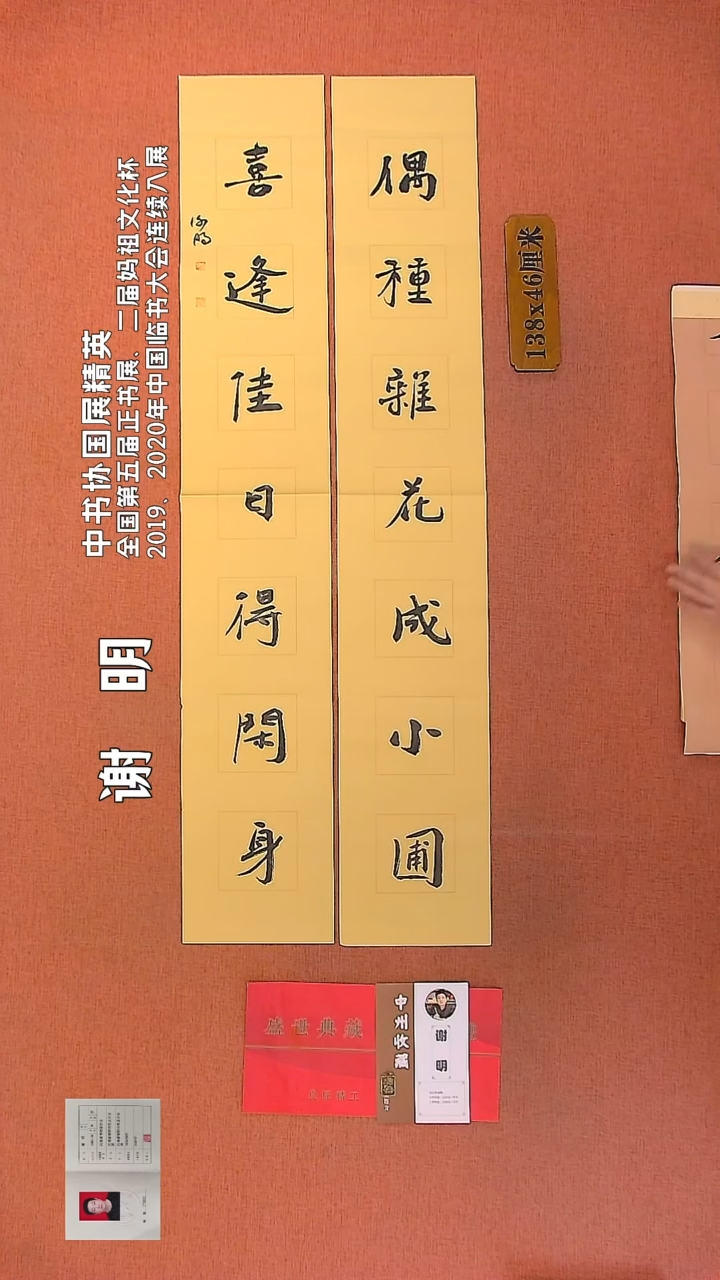 偶種雜花成小圃
喜逢佳日得閑身
谢明
138x46厘米
中书协国展精英
全国第五届正书展、二届妈祖文化杯
2019、2020年中国临书大会连续入展
谢 明
盛世典藏
中州收藏
谢明